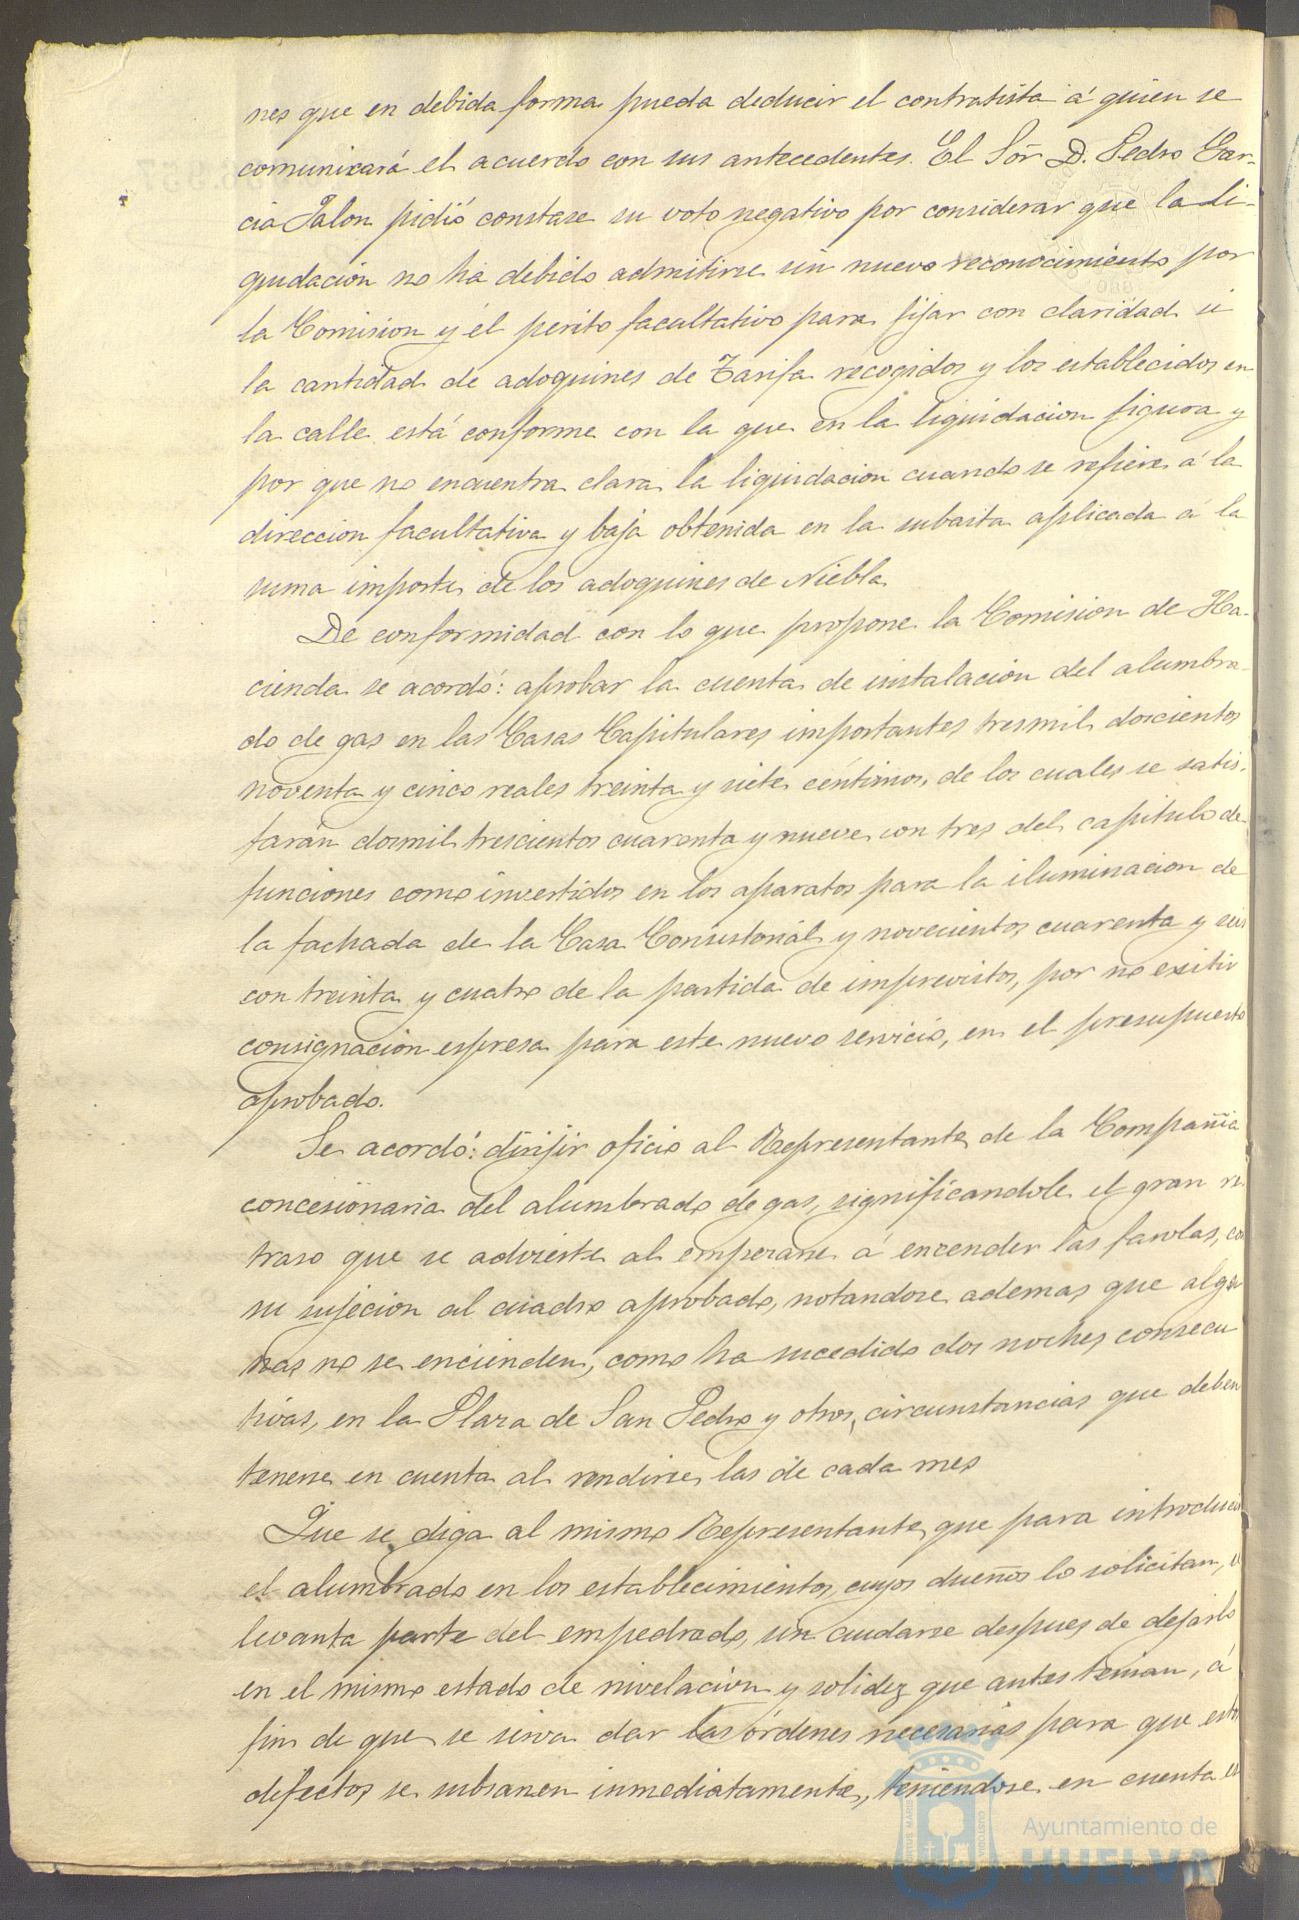 nes que en debida forma pueda deducir el contratista á quien se
comunicará el acuerdo con sus antecedentes. El Sōr D. Pedro Gar-
cia Jalon pidió constase su voto negativo por considerar que la li-
quidacion no ha debido admitirse sin nuevo reconocimiento por
la Comision y el perito facultativo para fijar con claridad si
la cantidad de adoquines de Tarifa recogidos y los establecidos en
la calle está conforme con la que en la liquidacion figura y
por que no encuentra clara la liquidacion cuando se refiere á la
direccion facultativa y baja obtenida en la subasta aplicada á la
suma importe de los adoquines de Niebla
De conformidad con lo que propone la Comision de Ha-
cienda se acordó: aprobar la cuenta de instalacion del alumbra-
do de gas en las Casas Capitulares importantes tresmil doscientos
noventa y cinco reales treinta y siete céntimos, de los cuales se satis-
farán dosmil trescientos cuarenta y nueve con tres del capitulo de
funciones como invertidos en los aparatos para la iluminacion de
la fachada de la Casa Consistorial y novecientos cuarenta y seis
con treinta y cuatro de la partida de imprevistos, por no existir
consignacion espresa para este nuevo servicio, en el presupuesto
aprobado.
Se acordó: dirijir oficio al Representante de la Compañia
concesionaria del alumbrado de gas, significandole el gran re
traso que se advierte al empezarse á encender las farolas, con
su sujecion al cuadro aprobado, notandose ademas que algu
nas no se encienden, como ha sucedido dos noches consecu
tivas, en la Plaza de San Pedro y otros, circunstancias que deben
tenerse en cuenta al rendirse las de cada mes
Que se diga al mismo Representante que para introducir
el alumbrado en los establecimientos cuyos dueños lo solicitan, se
levanta parte del empedrado, sin cuidarse despues de dejarlo
en el mismo estado de nivelacion y solidez que antes tenian, á
fin de que se sirva dar las órdenes necesarias para que estos
defectos se subsanen inmediatamente, teniendose en cuenta en
Ayuntamiento de
HUELVA